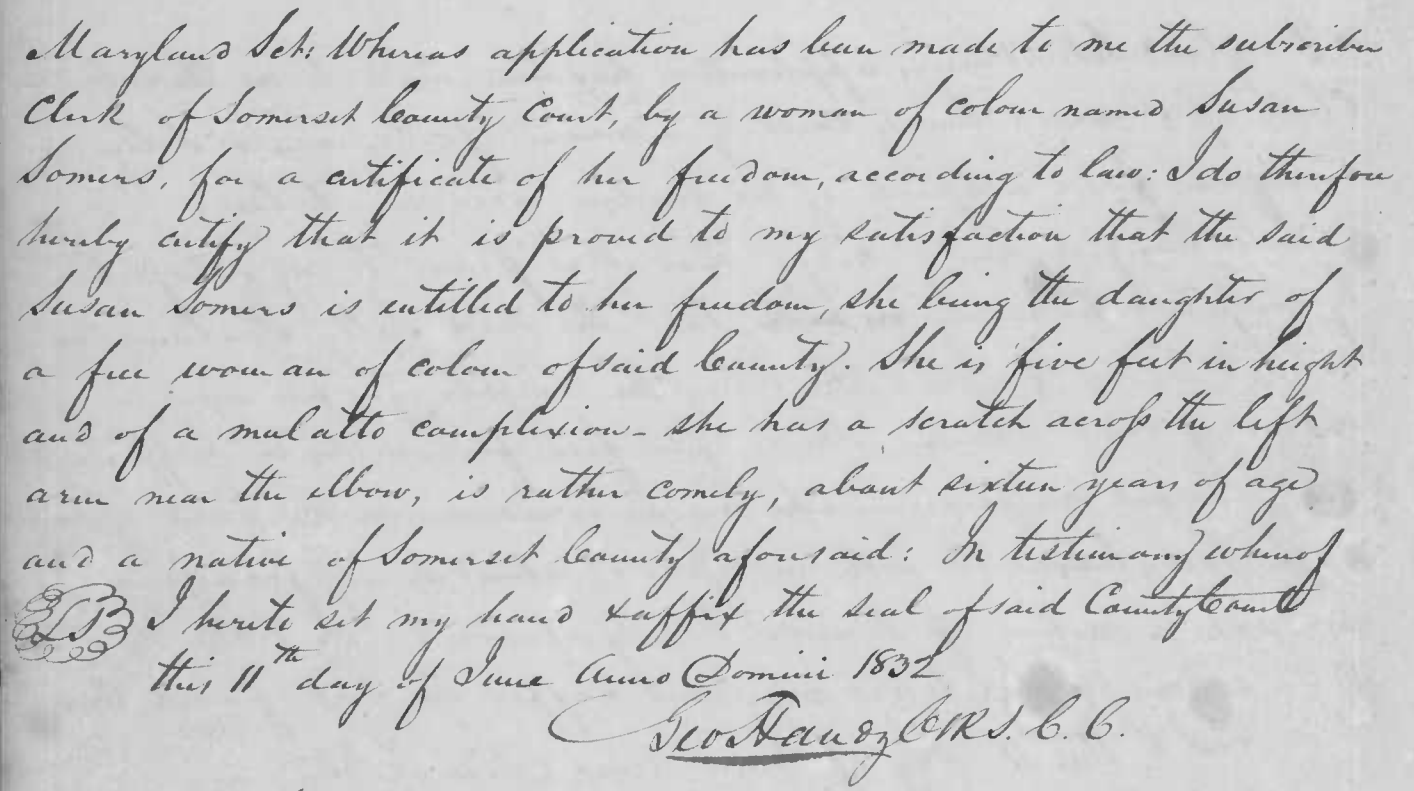 Maryland Sct: Whereas application has been made to me the subscriber
Clerk of Somerset County Court, by a woman of colour named Susan
Somers, for a certificate of her freedom, according to law: I do therefore
hereby certify that it is proved to my satisfaction that the said
Susan Somers is entitled to her freedom, she being the daughter of
a free woman of colour of said County. She is five feet in height
and of a mulatto complexion - she has a scratch across the left
arm near the elbow, is rather comely, about sixteen years of age
and a native of Somerset County aforesaid: In testimony whereof
I hereto set my hand & affix the seal of said County Court
this 11th day of June Anno Domini 1832
Geo Handy Clk S. C. C.